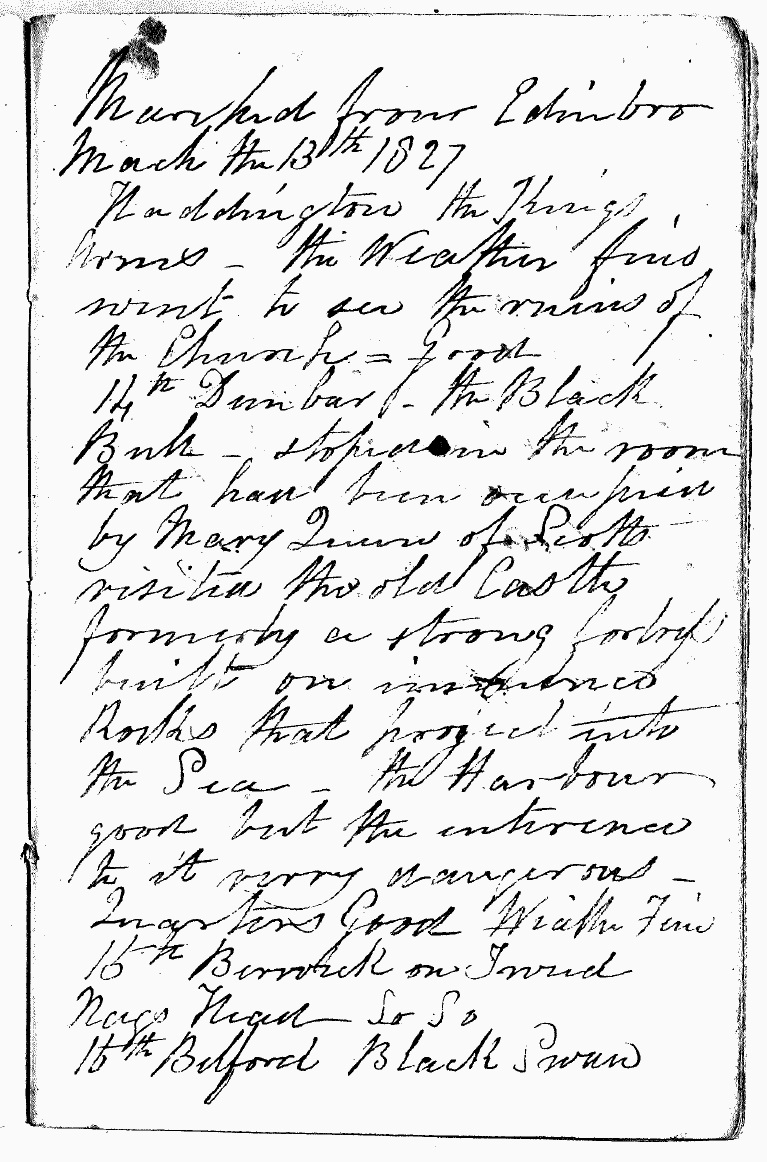 Marched from Edinbro
Mach the 13th 1827
Haddington the Kings
Arms - the Weather fine
went to see the ruins of
the Church = Good
14th Dunbar - the Black
Bull - stoped in the room
that had been occupied
by Mary Queen of Scotts
visited the old Castle
formerly a strong fortress
built on
Rocks that project into
the Sea - the Harbour
good but the enterence
to it verry dangerous -
Quarters Good Weather Fine
15th Berwick on Tweed
Nags Head So So
16th Belford Black Swan